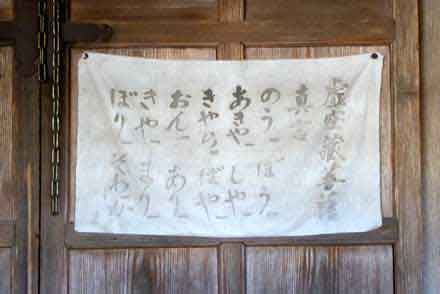 虚空藏菩薩
真言
のう ぼう
あきや しや
きやら ばや
おん あり
きや まり
ぼり そわか